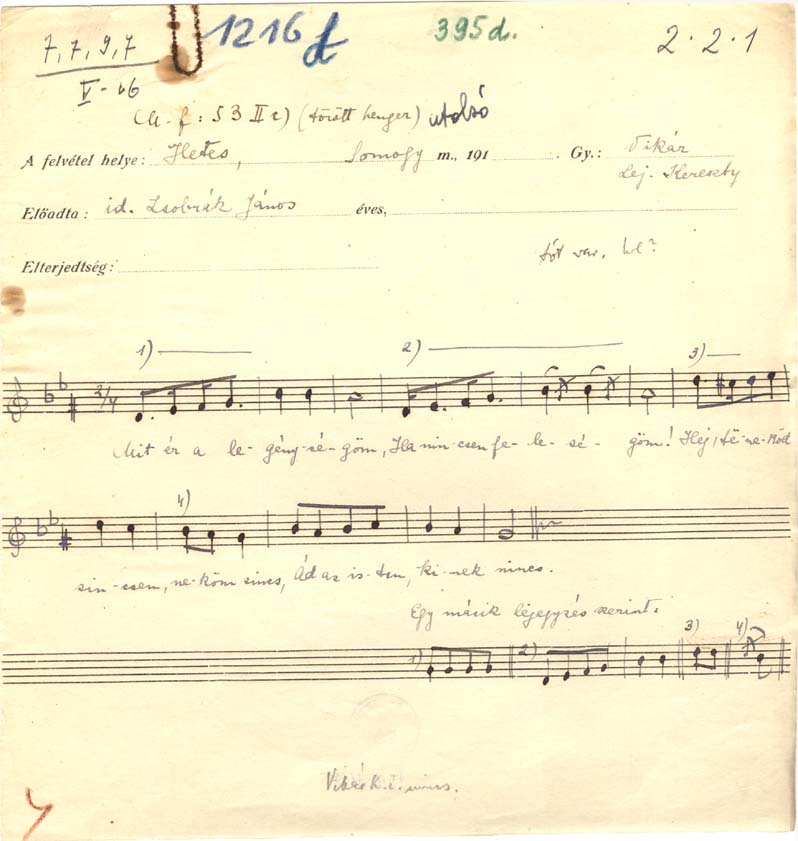 7, 7, 9, 7 1216 f 395 d. 2·2·1
V-b6
(M. f: 53 II c) (törött henger) utolsó
A felvétel helye: Hetes, Somogy m., 191 Gy.: Vikár
Lej. Kereszty
Előadta: id. Zsobrák János éves,
Elterjedtség: tót var. he?
1) 2) 3)
2/4
Mit ér a le- gény-sé-göm, Ha nin-csen fe- le- sé- göm! Hej, të-ne-köd
4)
sin-csen, ne-köm sincs, Ád az is-ten, ki-nek nincs.
Egy másik lejegyzés szerint:
1) 2) 3) 4)
nincs.